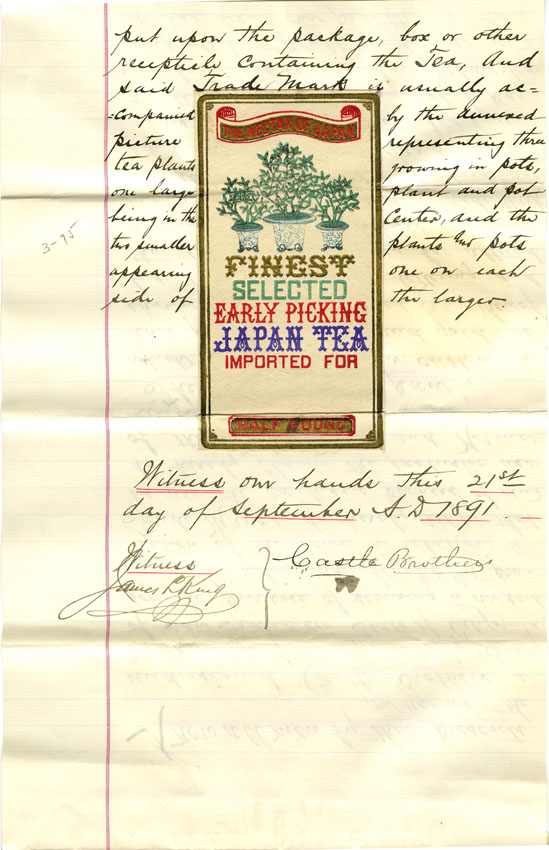 put upon the package, box or other
recepticle containing the Tea, And
said Trade Mark is usually ac=
=companied by the annexed
picture representing three
tea plants growing in pots,
one large plant and pot
being in the Center, and the
two smaller plants and pots
appearing one on each
side of the larger.
3-95
THE NECTAR OF JAPAN
FINEST
SELECTED
EARLY PICKING
JAPAN TEA
IMPORTED FOR
HALF POUND
Witness our hands this 21st
day of September A.D 1891.
Witness
James L King
Castle Brothers